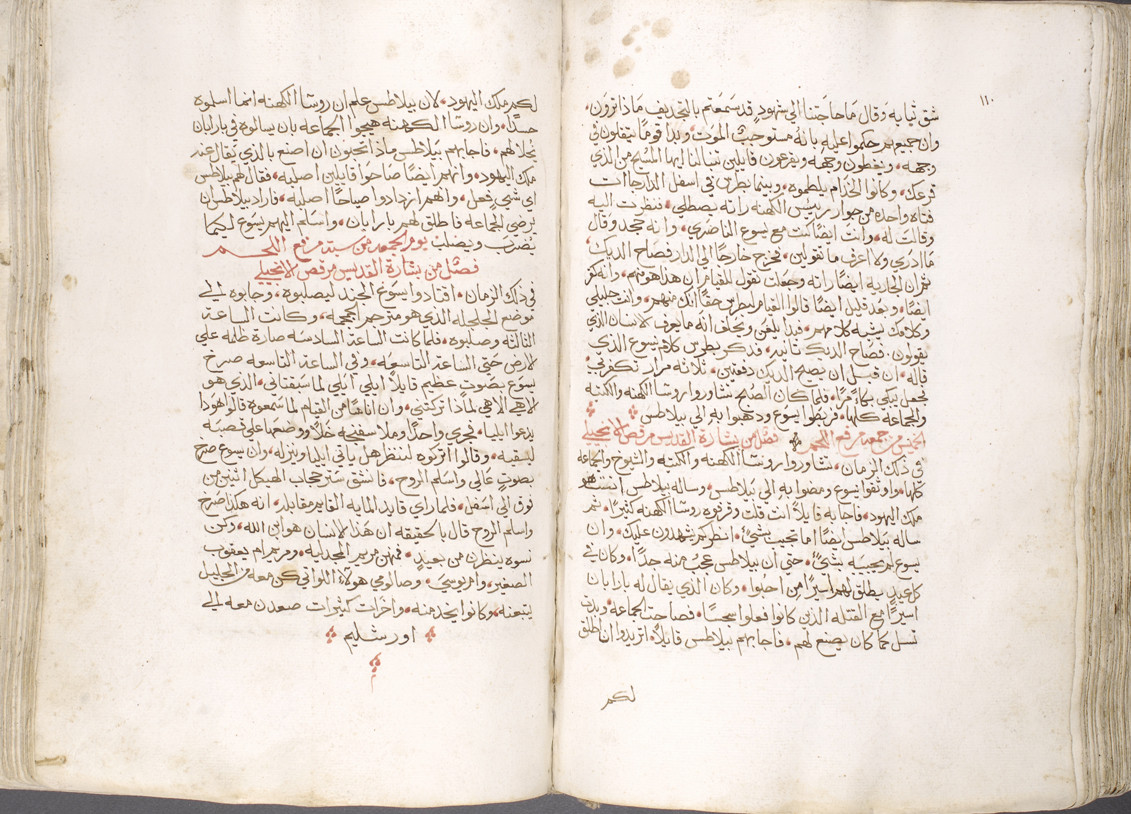 ١١٠
شق ثيابه وقال ما حاجتنا الي شهود قد سمعتم بالتجديف ماذا ترون
وان جميعهم حكموا عليه بانه مستوجب الموت وبدا قوما يتفلون في
وجهه ويغطون وجهه ويقرعون قايلين تنبا لنا ايها المسيح من الذي
قرعك وكانوا الخدام يلطموه وبينما بطرس في اسفل الدار جاات
فتاة واحده من جوار رييس الكهنه راته يصطلي فنظرت اليه
وقالت له وانت ايضا كنت مع يسوع الناصري وانه جحد وقال
ما ادري ولا اعرف ما تقولين فخرج خارجا الي الدار فصاح الديك
ثم ان الجاريه ايضا راته وجعلت تقول للقيام ان هذا هو منهم وانه نكر
ايضا وبعد قليل ايضا قالوا القيام لبطرس حقا انك منهم وانت جليلي
وكلامك يشبه كلامهم فبدا يلعن ويحلف انه ما يعرف لانسان الذي
يقولون فصاح الديك تانيه فذكر بطرس كلام يسوع الذي
قاله ان قبل ان يصيح الديك دفعتين ثلاثه مرار تنكرني
فجعل يبكي بكا مرا فلما كان الصبح تشاوروا روسا الكهنه والكتبه
والجماعه كلها فربطوا يسوع ودهبوا به الي بيلاطس
الخميس من جمعه مرفع اللحم فصل من بشارة القديس مرقص الانجيلي
في ذلك الزمان تشاوروا روسا الكهنه والكتبه والشيوخ والجماعه
كلها واوثقوا يسوع ومضوا به الي بيلاطس وساله بيلاطس انت هو
ملك اليهود فاجابه قايلا انت قلت وقرفوه روسا الكهنه كثيرا ثم
ساله بيلاطس ايضا اما تجيب بشيء انظر كم يشهدون عليك وان
يسوع لم يجيبه بشيء حتي ان بيلاطس عجب منه جدا وكان في
كل عيد يطلق لهم اسيرا من احبوا وكان الذي يقال له بارابان
اسيرا مع القتله الذين كانوا فعلوا سجسا فصاحت الجماعه وبدت
تسل كما كان يصنع لهم فاجابهم بيلاطس قايلا اتريدوا ان اطلق
لكم
لكم ملك اليهود لان بيلاطس علم ان روسا الكهنه انما اسلموه
حسدا وان روسا الكهنه هيجوا الجماعه بان يسالوه في بارابان
يخلا لهم فاجابهم بيلاطس ماذا تحبون ان اصنع بالذي يقال عنه
ملك اليهود وانهم ايضا صاحوا قايلين اصلبه فقال لهم بيلاطس
اي شي ردي فعل والهم ازدادوا صياحا اصلبه فاراد بيلاطس ان
يرضي الجماعه فاطلق لهم بارابان واسلم اليهم يسوع ليكما
يضرب ويصلب يوم الجمعه من سبة مرفع اللحم
فصل من بشارة القديس مرقص الانجيلي
في ذلك الزمان اقتادوا يسوع الجند ليصلبوه وجابوه الي
موضع الجلجله الذي هو مترجم الجمجمه وكانت الساعه
الثالثه وصلبوه فلما كانت الساعه السادسه صارة ظلمه علي
لارض حتي الساعه التاسعه وفي الساعه التاسعه صرخ
يسوع بصوت عظيم قايلا ايلي ايلي لما سبقتاني الذي هو
لاهي الاهي لماذا تركتني وان اناسا من القيام لما سمعوه قالوا هوذا
يدعوا ايليا فجري واحدا وملا سفنجه خلا ووضعها علي قصبه
ليسقيه وقالوا اتركوه لننظر هل ياتي ايليا وينزله وان يسوع صرخ
بصوت عالي واسلم الروح فانشق ستر حجاب الهيكل اثنين من
فوق الي اسفل فلما راي قايد المايه القايم مقابله انه هكذا صرخ
واسلم الروح قال بالحقيقه ان هذا لانسان هو ابن الله وكن
نسوه ينظرن من بعيد فمنهن مريم المجدليه ومريم ام يعقوب
الصغير وام يوسي وصالومي هولاء اللواتي كن معه من الجليل
يتبعنه وكانوا يخدمنه واخرات كثيرات صعدن معه الي
اورشليم